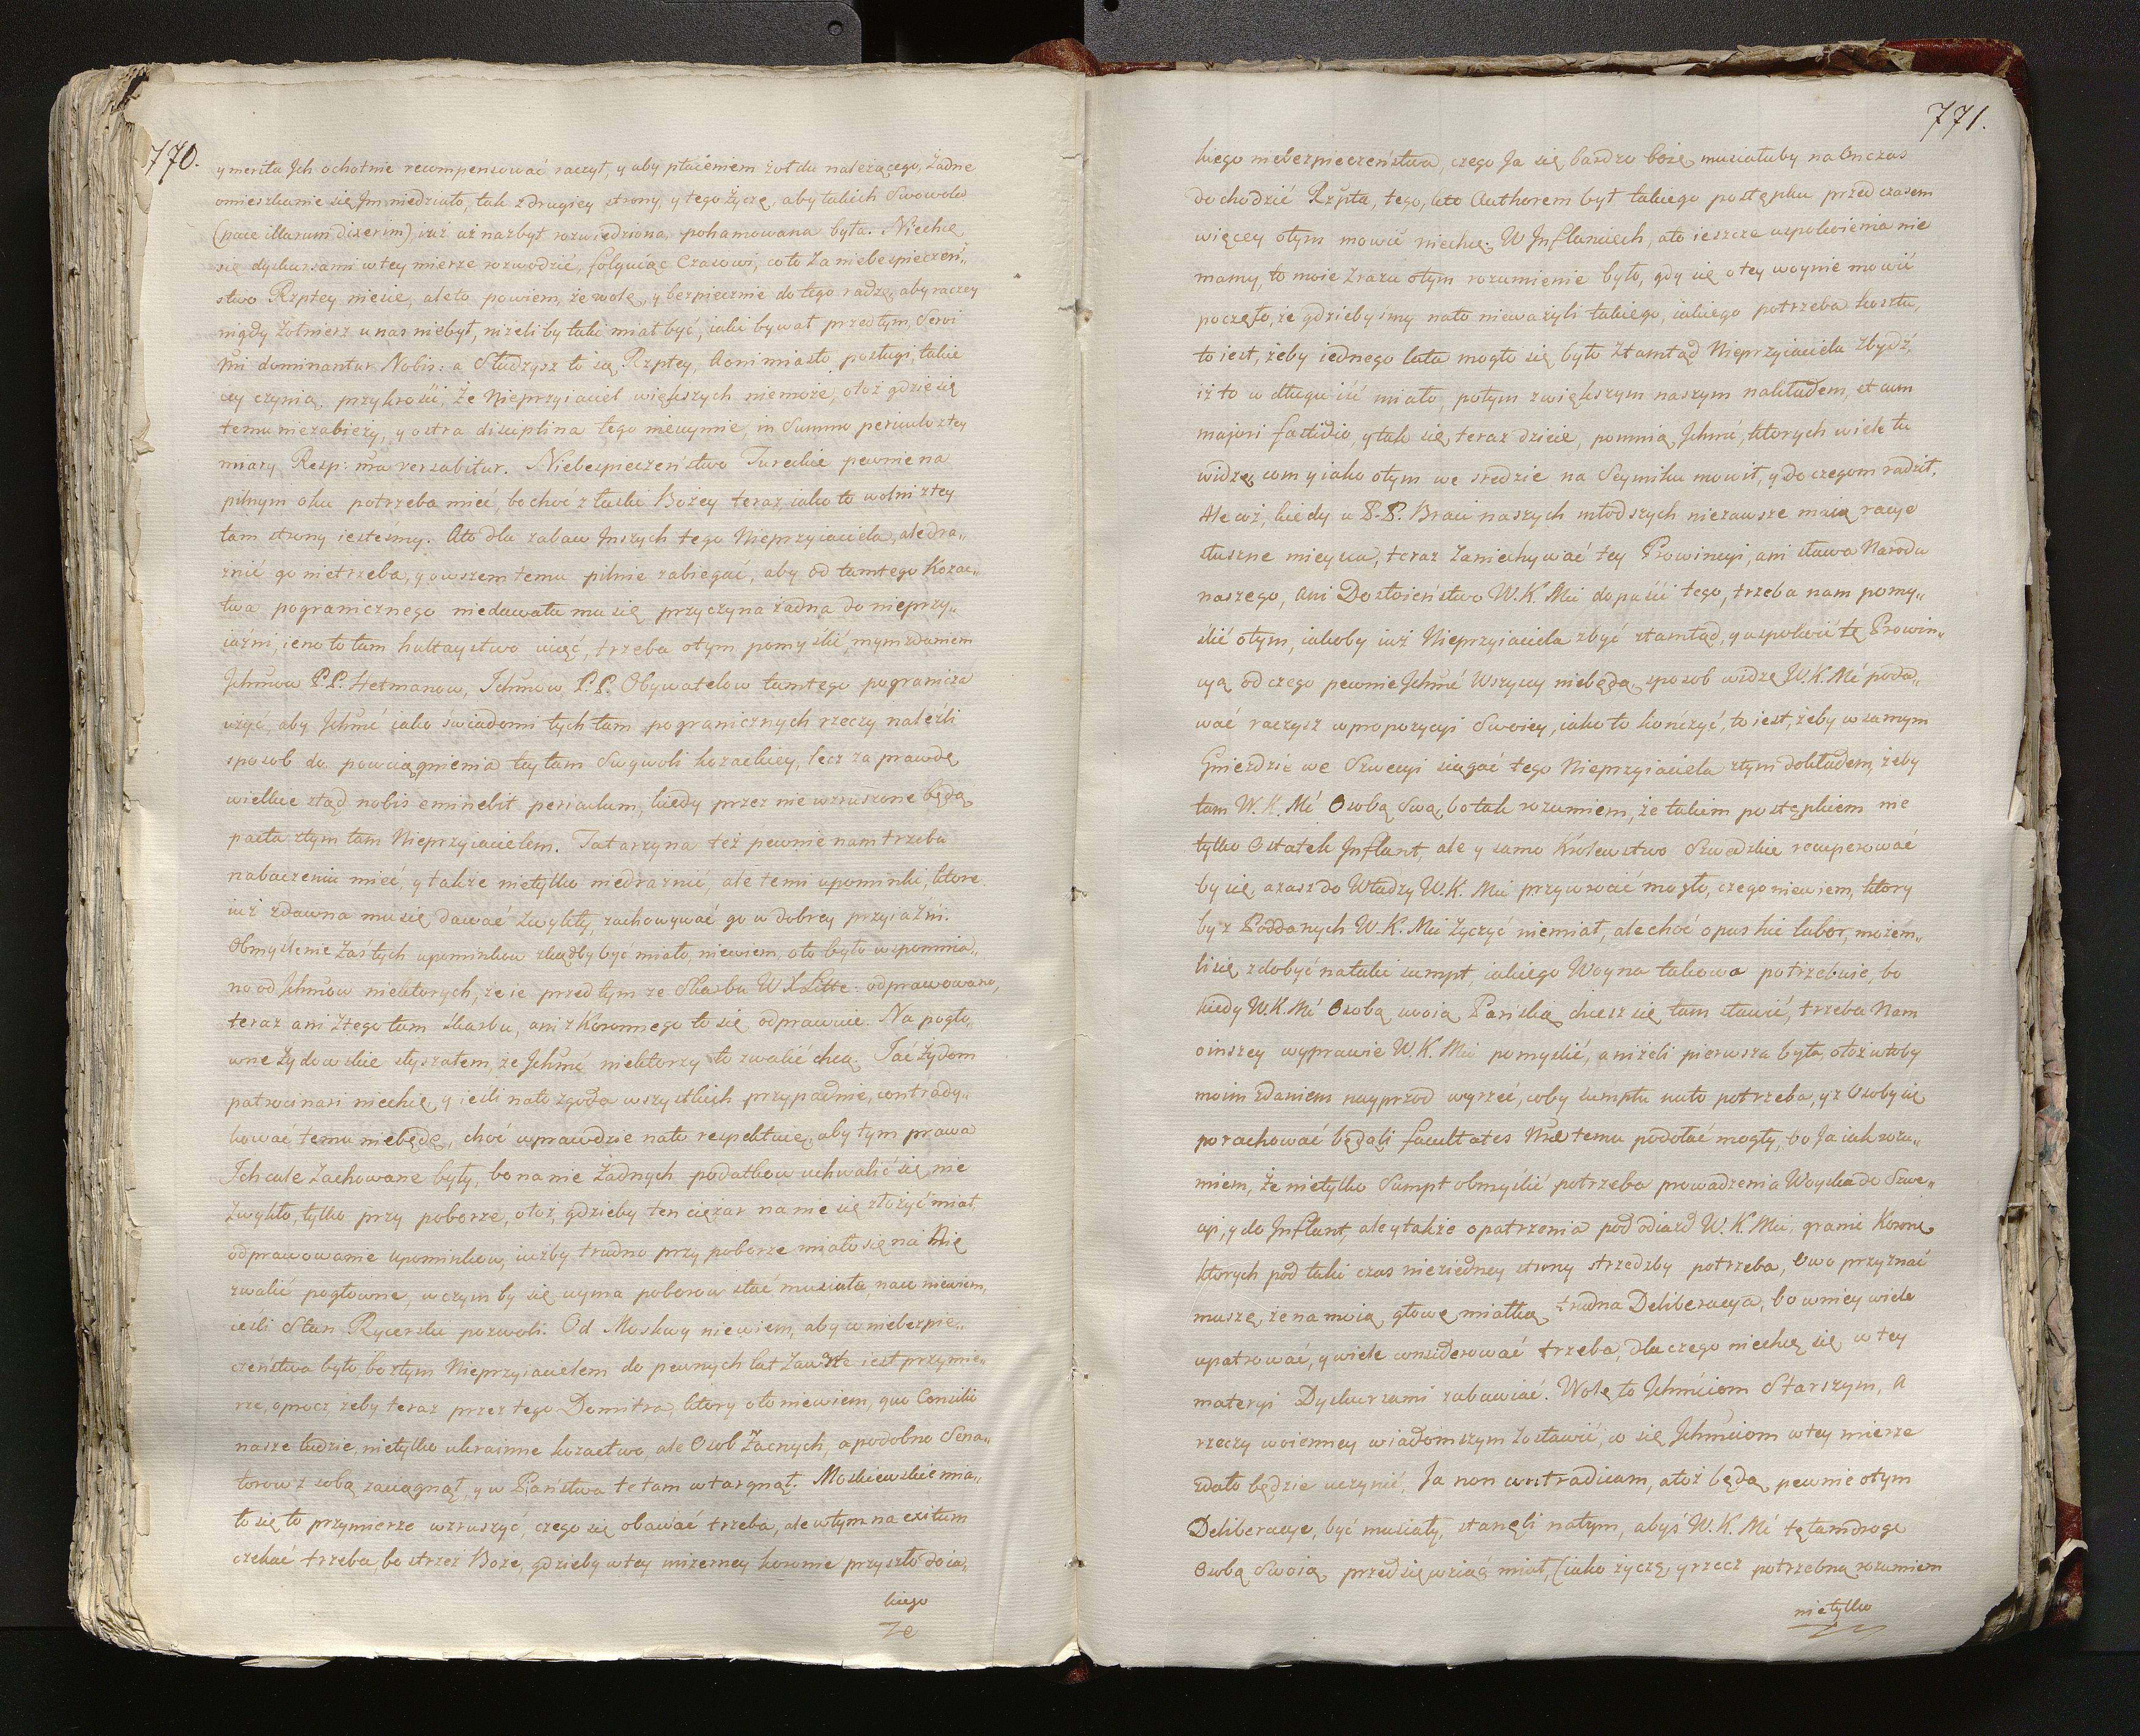 770.
y merita Jch ochotnie recompensować raczył, y aby płaceniem żołdu należącego, żadne
omieszkanie się Jm niedziało, tak z drugiey strony, y tego życzę, aby takich Swowola
(pace illarum dixerim) iuż aż nazbyt rozwiedziona, pohamowana była. Niechcę
się dyskursami w tey mierze rozwodzić, folguiąc Czasowi, co to za niebespieczeń„
stwo Rzptey niesie, ale to powiem, że wolę, y bezpiecznie do tego radzę, aby raczey
nigdy żołnierz u nas niebył, niżeli by taki miał być, iaki bywał przedtym, Servi
dominantur Nobis: a Słudzysz to są Rzptey, a oni miasto posługi, takie
iey czynią przykrości, że Nieprzyiaciel większych niemoże, otoż gdzie się
temu niezabieży, y ostra disciplina tego nieuymie, in Summo periculo z tey
miary Resp: versabitur. Niebespieczeństwo Tureckie pewnie na
pilnym oku potrzeba mieć, bo choć z łaski Bożey teraz, iako to wolni z tey
tam strony iesteśmy. Ato dla zabaw Jnszych tego Nieprzyiaciela, ale dra„
żnić go nietrzeba, y owszem temu pilnie zabiegać, aby od tamtego Kozac„
twa pogranicznego niedawała mu się przyczyna żadna do nieprzy„
iaźni, ieno to tam hultaystwo uiąć, trzeba otym pomyślić, mym zdaniem
Jchmciow P.P. Hetmanow, Jchmciow P.P. Obywatelow tamtego pogranicza
użyć, aby Jchmć iako świadomi tych tam pogranicznych rzeczy naleźli
sposob do powciągnienia tey tam Swywoli kozackiey, lecz za prawdę
wielkie ztąd nobis eminebit periculum, kiedy przez nie wzruszone będą
pacta z tym tam Nieprzyiacielem. Tatarzyna też pewnie nam trzeba
nabaczeniu mieć, y także nietylko niedraznić, ale temi upominki, ktore
iuż zdawna mu się dawać zwykły, zachowywać go w dobrey przyiaźni.
Obmyslenie zaś tych upominkow zkądby być miało, niewiem, oto było wspomnia„
no od Jchmciow niektorych, że ie przedtym ze Skarbu W X Litte: odprawowano,
teraz ani z tego tam skarbu, ani z Koronnego to się odprawuie. Na pogło„
wne żydowskie słyszałem, że Jchmć niektorzy to zwalić chcą. Jać żydom
patrocinari niechcę, y ieśli nato zgoda wszystkich przypadnie, contrady„
kować temu niebędę, choć wprawdzie nato respektuię, aby tym prawa
Jch całe zachowane były, bo na nie żadnych podatkow uchwalić się nie
zwykło, tylko przy poborze, otoż, gdzieby ten ciężar na nie się złożyć miał,
odprawowanie upominkow, iużby trudno przy poborze miało się na Nię
zwalić pogłowne, w czym by się uyma poborow stać musiała, nacc niewiem,
ieśli Stan Rycerski pozwoli. Od Moskwy niewiem, aby co niebezpie„
czeństwa było, bo z tym Nieprzyiacielem do pewnych lat zawarte iest przymie„
rze, oprocz, żeby teraz przez tego Demitra, ktory oto niewiem, quo Consilio
nasze ludzie, nietylko ukrainne kozactwo, ale Osob Zacnych, a podobno Sena„
torow z sobą zaciągnął, y w Państwa te tam wtargnął. Moskiewskie mia„
ło się to przymierze wzruszyć, czego się obawiać trzeba, ale w tym na exitum
czekać trzeba, bo strzeż Boże, gdzieby w tey mizerney koronie przyszło do ia„
kiego
771.
kiego niebezpieczeństwa, czego Ja się bardzo boię, musiałaby na Onczas
dochodzić Rzpta, tego, kto Authorem był takiego postępku przed czasem
więcey otym mowić niechcę. W Jnflanciech, ato ieszcze uspokoienia nie
mamy, to moie zrazu otym rozumienie było, gdy się o tey woynie mowić
poczęło, że gdziebyśmy nato nieważyli takiego, iakiego potrzeba kosztu,
to iest, żeby iednego lata mogło się było ztamtąd Nieprzyiaciela zbydź,
iż to w długą iść miało, potym z większym naszym nakładem, et cum
majori fastidio, y tak się teraz dzieie, pomnią Jchmć, ktorych wiele tu
widzę, com y iako otym we sredzie na Seymiku mowił, y do czegom radził.
Ale coż, kiedy u P.P. Braci naszych młodszych niezawsze maią racye
słuszne mieysca, teraz zaniechywać tey Prowincyi, ani sława Narodu
naszego, ani Dostoieństwo W.K.Mci dopuści tego, trzeba nam pomy„
ślić otym, iakoby iuż Nieprzyiaciela zbyć ztamtąd, y uspokoić tę Prowin„
cyą od czego pewnie Jchmć Wszyscy niebędą, sposob widzę W.K.Mć poda„
wać raczysz w propozycyi Swoiey, iako to kończyć, to iest, żeby w samym
Gniezdzie we Szwecyi siągać tego Nieprzyiaciela z tym dokładem, żeby
tam W.K.Mć Osobą Swą, bo tak rozumiem, że takim postępkiem nie
tylko Ostatek Jnflant, ale y samo Krolewstwo Szwedzkie recuperować
by się, a zasz do Władzy W.K.Mci przywrocić mogło, czego niewiem, ktory
by z Poddanych W.K.Mci życzyć niemiał, ale choć opus hic labor, możem„
li się zdobyć na taki sumpt, iakiego Woyna takowa potrzebuie, bo
kiedy W.K.Mć Osobą swoią Pańską chcesz się tam stawić, trzeba Nam
o inszey wyprawie W.K.Mci pomyslić, a niżeli pierwsza była, otoż atoby
moim zdaniem nayprzod wyrzeć, coby sumptu nato potrzeba, y z Osoby się
porachować będąli facultates temu podołać mogły, bo Ja iak rozu„
miem, że nietylko Sumpt obmyślić potrzeba prowadzenia Woyska do Szwe„
cyi, y do Jnflant, ale y także opatrzenia pod odiazd W.K.Mci, granic Korony
ktorych pod taki czas nieziedney strony strzedzby potrzeba, Owo przyznać
muszę, że na moią głowę miałką trudna Deliberacya, bo w niey wiele
upatrować, y wiele considerować trzeba, dla czego niechcę się w tey
materyi Dyskursami zabawiać. Wolę to Jchmciom Starszym, a
rzeczy woienney wiadomszym zostawić, co się Jchmciom w tey mierze
zdało będzie uczynić, Ja non contradicam, a toż będą pewnie otym
Deliberacye, być musiały, stanęli natym, abyś W.K.Mć tę tam drogę
Osobą Swoią przedsięwziąć miał, (iako życzę, y rzecz potrzebną rozumiem
nietylko